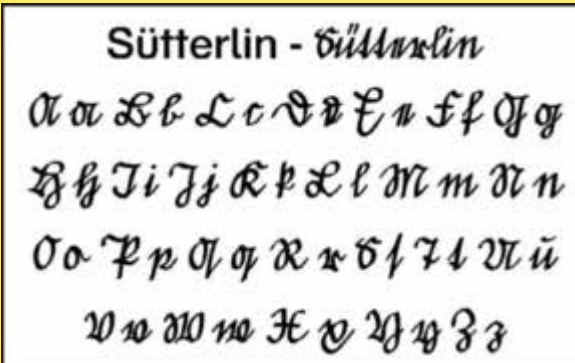 Sütterlin - Sütterlin
A a B b C c D d E e F f G g
H h I i J j K k L l M m N n
O o P p Q q R r S s T t U u
V v W w X x Y y Z z